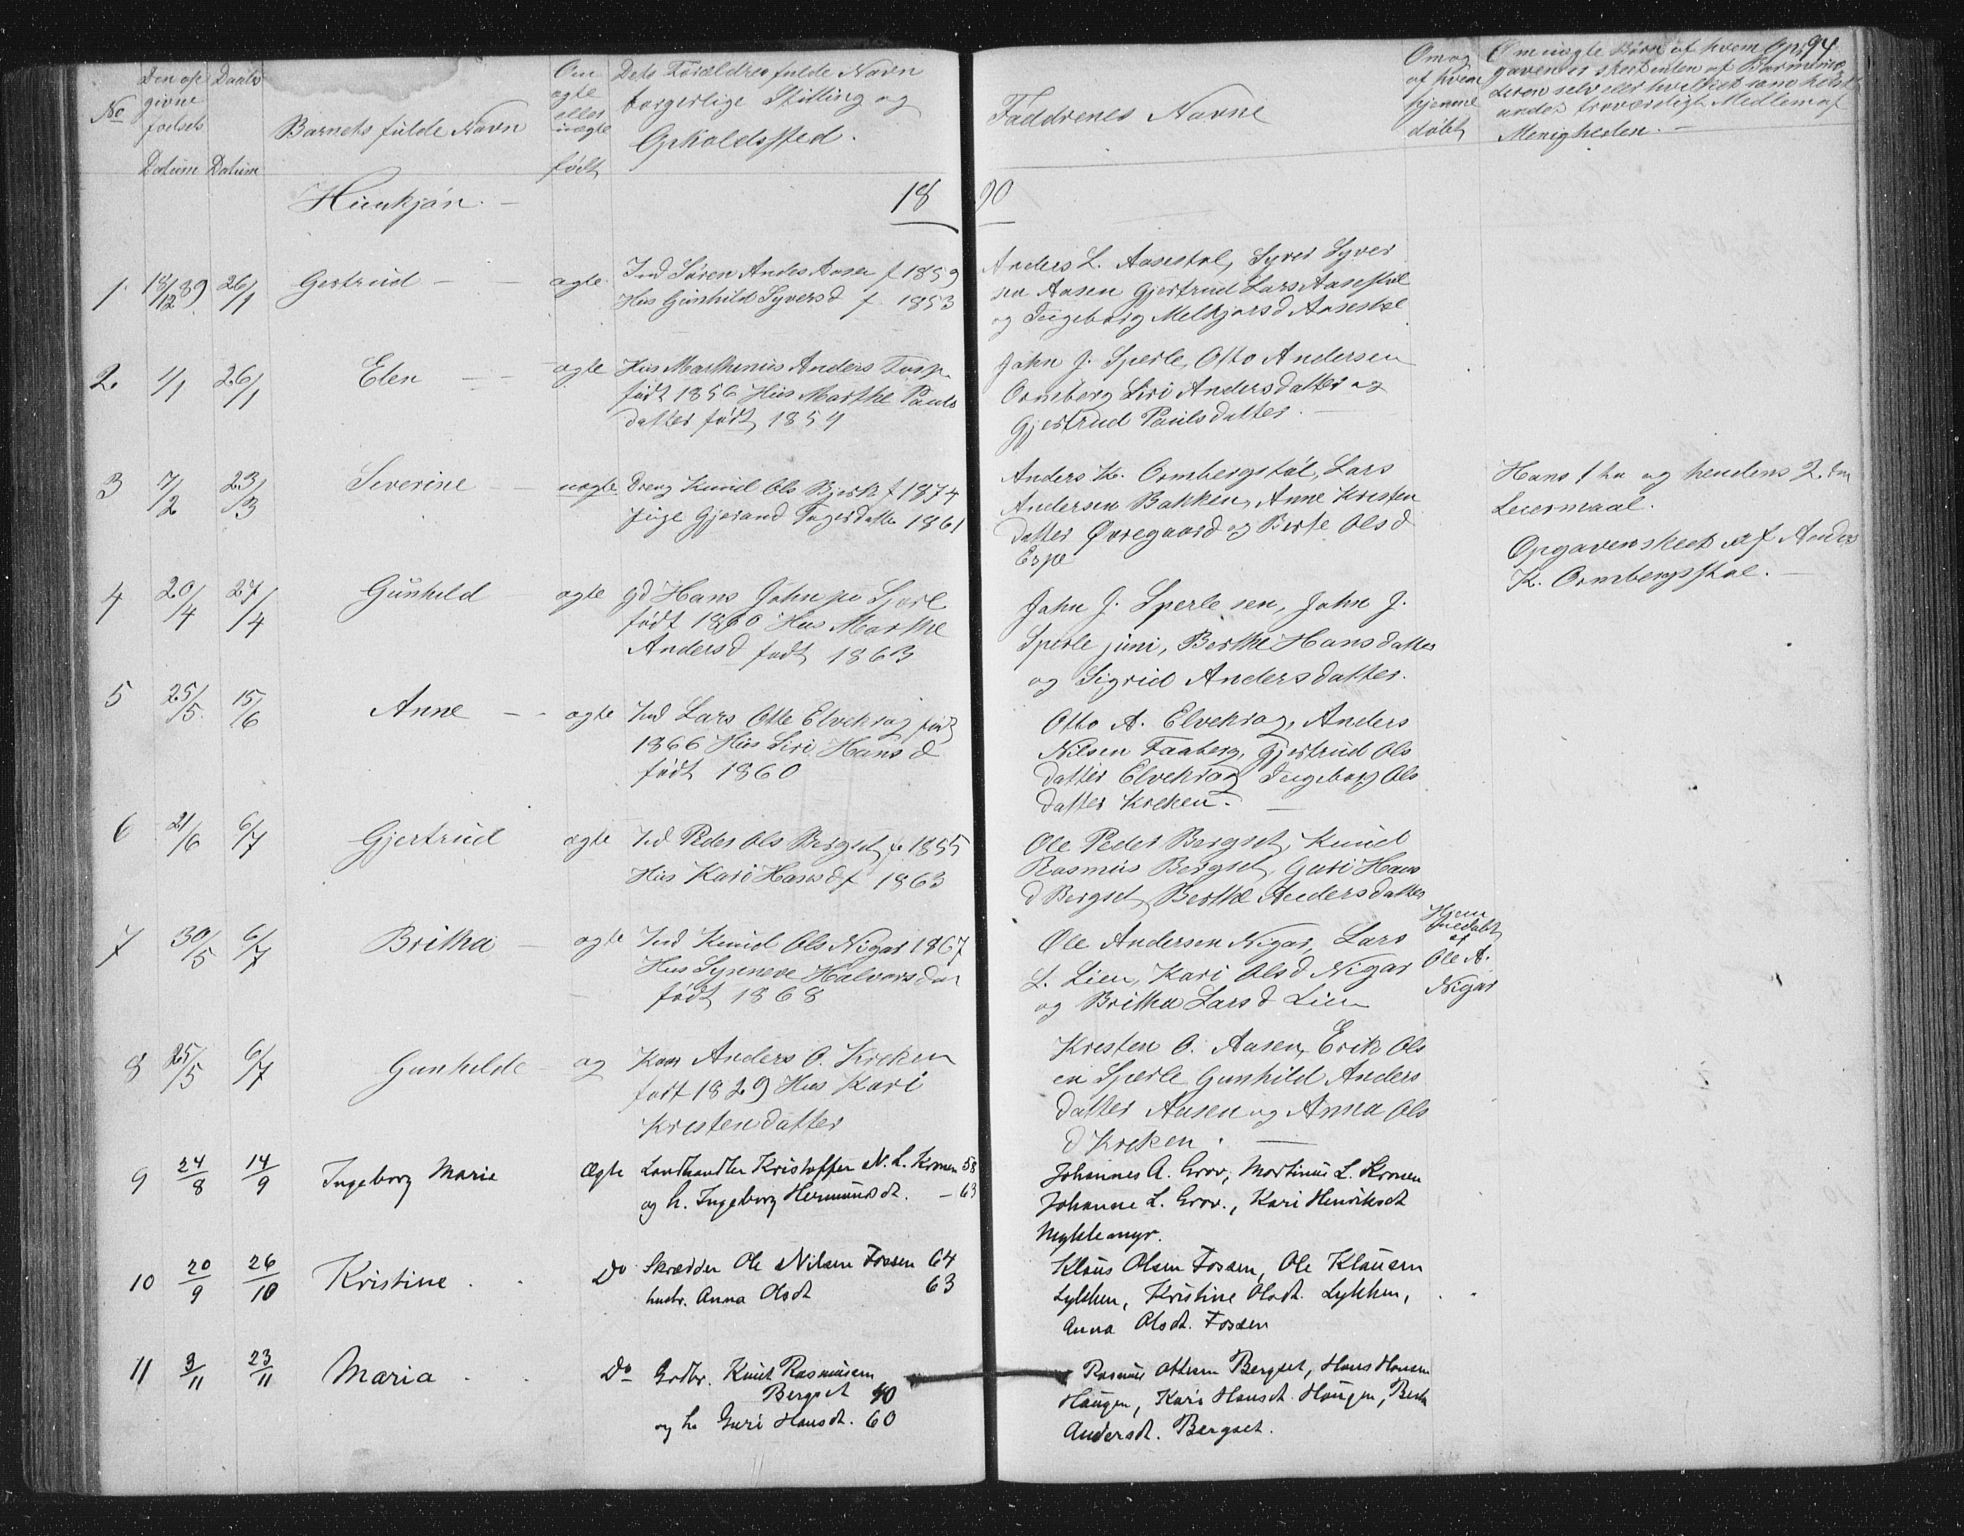 94
No
Den op
givne
fødsels
Datum
Daabs
Datum
Barnets fulde Navn
Om
ægte
eller
uægte
født
Dets Forældres fulde Navn
borgerlige Stilling og
Opholdssted.
Faddrenes Navne
Om og
af hvem
hjemme
døbt
Menigheden. —
Hunkjøn. — 18 90
1. 18/12 89 26/1 Gertrud — — ægte Ind Søren Anders Aasen f 1859
Hus Gunhild Syversd f. 1853
Anders L. Aasestøl, Syver Syver
sen Aasen Gjertrud Lars Aasestøl
og Ingeborg Melkjorsd Aasestøl
2. 1/1 26/1 Elen — — ægte Hus Marthinus Anders
født 1856 Hus Marthe Pauls
datter født 1854
John J. Sperle, Otto Andersen
Ormberg Siri Andersdatter og
Gjertrud Paulsdatter. —
3 7/2 23/3 Severine — uægte Dreng Knud Ols Bjerk f 1874
Pige Gjerand 1861
Anders K. Ormbergstøl, Lars
Andersen Bakken, Anne Kristen
datter Øvregaard og Berte Olsd
Espe
Hans 1ste og hendens 2. den
Leiermaal.
Opgaven skeet af Anders
K. Ormbergstøl. —
4 20/4 27/4 Gunhild ægte Hans John
født 1860 Hus Marthe
Andersd født 1863
John J. Sperle sen, John J.
Sperle juni, Berthe Hansdatter
og Sigrid Andersdatter.
5 25/5. 15/6 Anne — - ægte Ind Lars Otte Elvekrog født
1866 Hus Siri Hansd
født 1860
Otto A. Elvekrog, Anders
Nilsen Faaberg, Gjertrud Ols
datter Elvekrog Ingeborg Ols
datter Kreken. —
6 21/6 6/7 Gjertrud ægte Ind Peder Ols Bergset f 1855
Hus Kari Hansd f 1863
Ole Peder Bergset, Knud
Rasmus Bergset, Guri Hans
d Bergset, Berthe Andersdatter
7 30/5 6/7 Britha — ægte Ind Knud Ols Nigar 1867
Hus Synneve Halvorsdat
født 1868
Ole Andersen Nigar, Lars
L. Lien, Kari Olsd Nigar
og Britha Larsd Lien
Hjem
medøbt
af
Ole A.
Nigar
8 25/5 6/7 Gunhilde — æg Kaar Anders O. Kreken
født 1829 Hus Kari
Kristendatter
Kresten O. Aasen, Erik Ols
en Sperle Gunhild Anders
datter Aasen og Anna Ols
d Kreken. —
9 24/8 14/9 Ingeborg Marie Ægte Landhandler Kristoffer N. L. Kronen 58
og h. Ingeborg Hermundsdt. — 63
Johannes A. Grov, Martinus L. Kronen
Johanne L. Grov., Kari Henriksdt
Myklemyr.
10 20/9 26/10 Kristine . . Do Skrædder Ole Nilsen Fossen 64
hustr. Anna Olsdt 63
Klaus Olsen Fossen, Ole Klausen
Lykken, Kristine Olsdt. Lykken,
Anna Olsdt. Fossen
11 3/11 23/11 Maria . . Do Grdbr. Knut Rasmusen
Bergset 40
og h. Guri Hansdt. 60
Rasmus Ottesen Bergset, Hans Hansen
Haugen, Kari Hansdt. Haugen, Berte
Andersdt. Bergset.